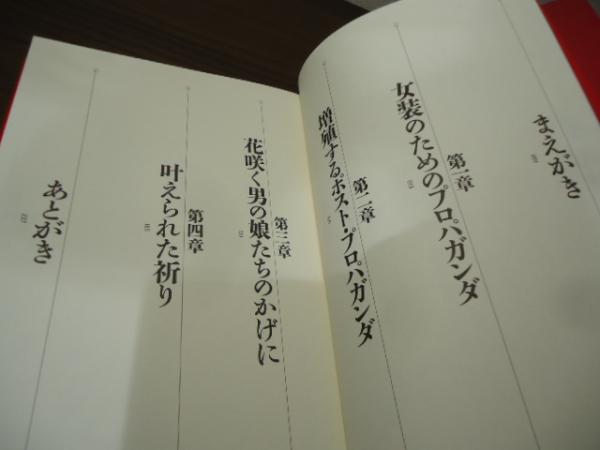 まえがき
第一章
女装のためのプロパガンダ
第二章
増殖するポスト・プロパガンダ
第三章
花咲く男の娘たちのかげに
第四章
叶えられた祈り
あとがき